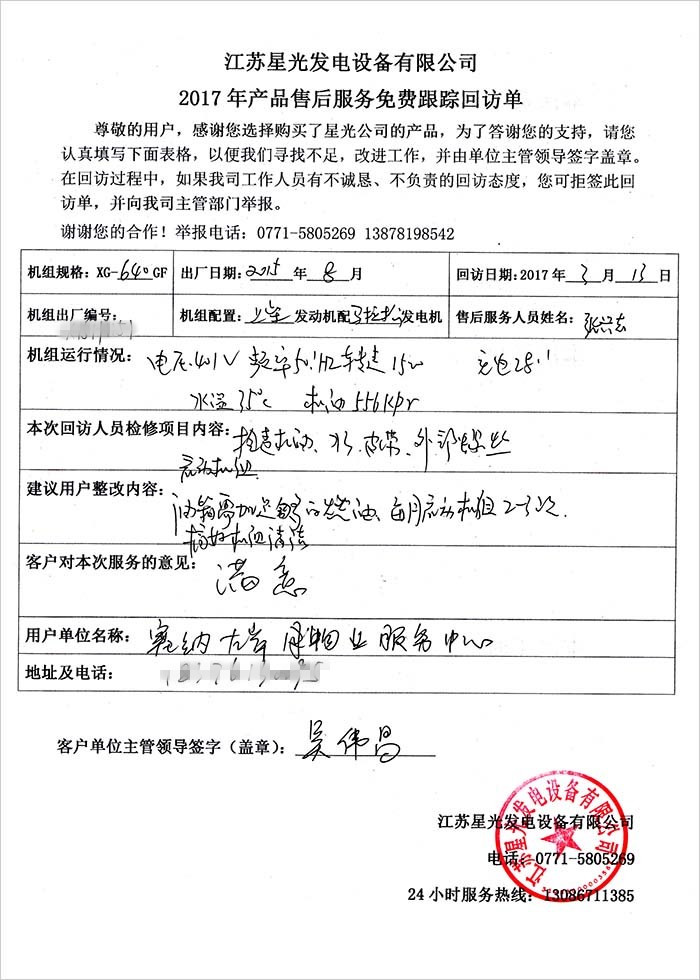 江苏星光发电设备有限公司
2017年产品售后服务免费跟踪回访单
尊敬的用户，感谢您选择购买了星光公司的产品，为了答谢您的支持，请您
认真填写下面表格，以便我们寻找不足，改进工作，并由单位主管领导签字盖章。
在回访过程中，如果我司工作人员有不诚恳、不负责的回访态度，您可拒签此回
访单，并向我司主管部门举报。
谢谢您的合作！举报电话：0771-5805269 13878198542
机组规格：XG-640GF 出厂日期：2015年8月 回访日期：2017年3月13日
机组出厂编号： 机组配置：上柴发动机配马拉松发电机 售后服务人员姓名：
机组运行情况：电压401V 频率50.1HZ 转速1500 充电28.1
水温35℃ 机油556kpr
本次回访人员检修项目内容：检查机油、水、皮带、外部螺丝
启动机组
建议用户整改内容：油箱需加足够的燃油、每月启动机组2-3次.
搞好机组清洁
客户对本次服务的意见：满意
用户单位名称：塞纳左岸 物业服务中心
地址及电话：
客户单位主管领导签字（盖章）：吴伟昌
江苏星光发电设备有限公司
江苏星光发电设备有限公司
电话：0771-5805269
24小时服务热线：13086711385